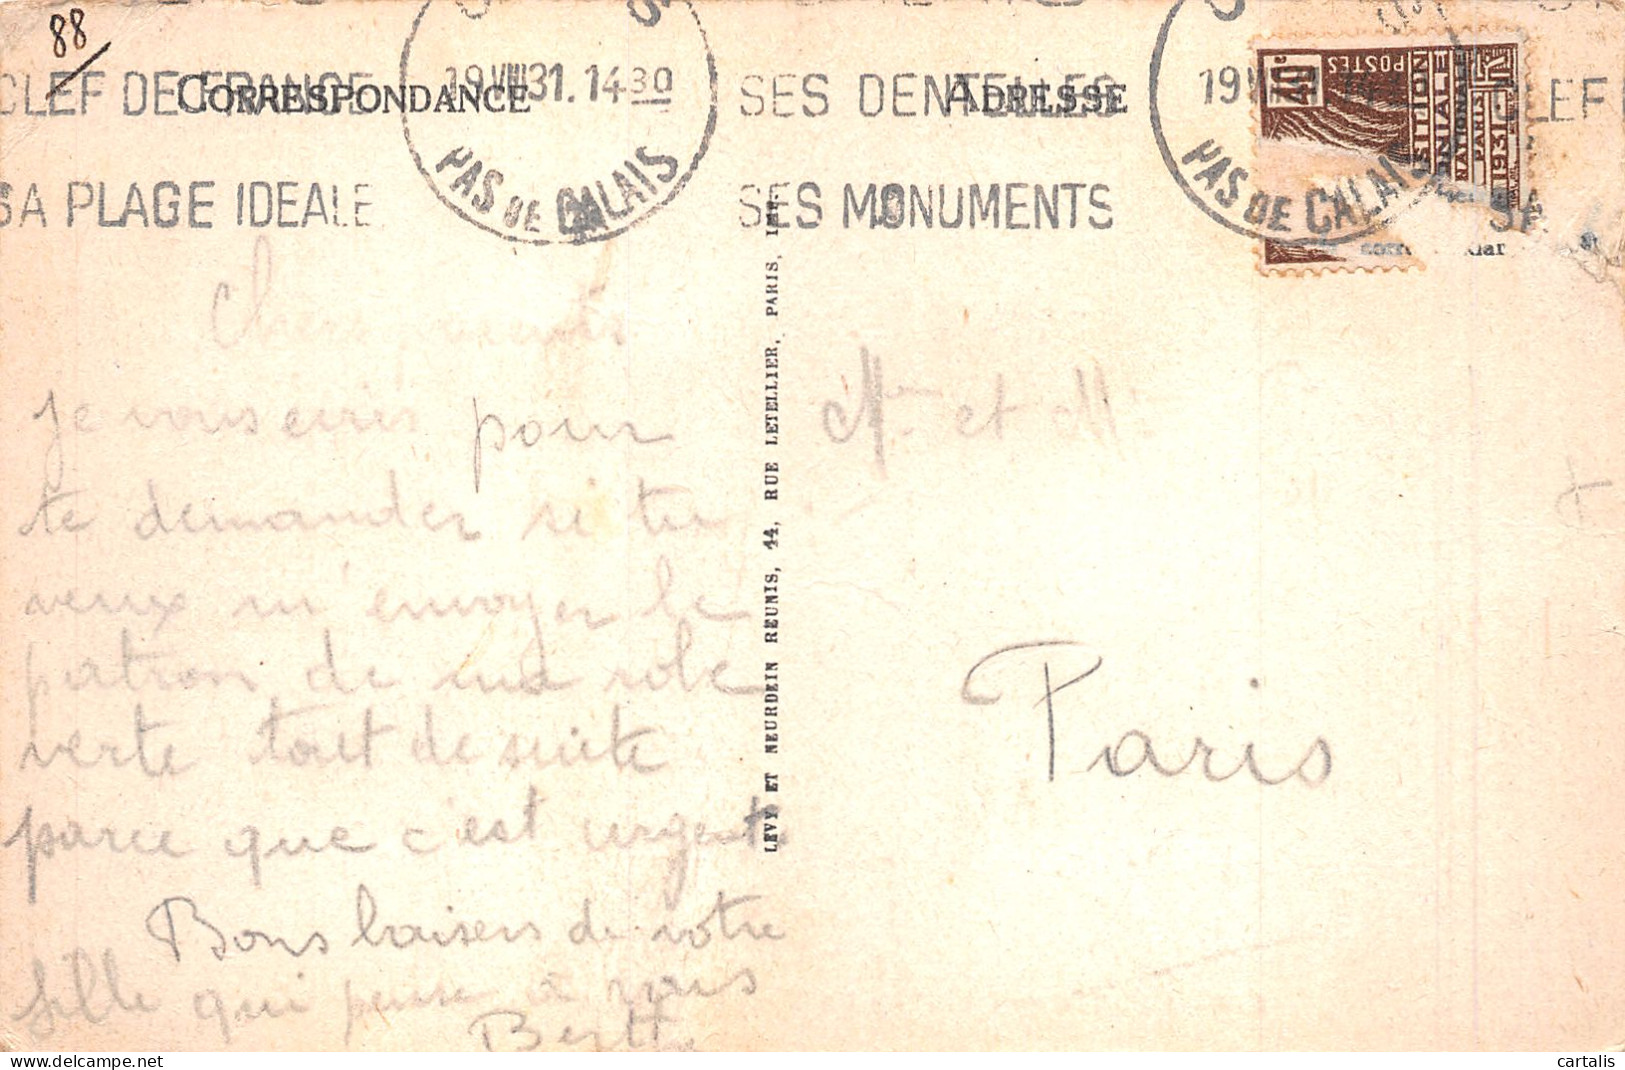 88
CLEF DE FRANCE
SA PLAGE IDEALE
CORRESPONDANCE
19 VIII 31. 14 30
PAS DE CALAIS
SES DENTELLES
SES MONUMENTS
ADRESSE
PAS DE CALAIS
40c
POSTES
1931
CLEF
Chers parents
Je vous écris pour
te demander si tu
veux m'envoyer le
patron de ma robe
verte tout de suite
parce que c'est urgent
Bons baisers de votre
fille qui pense à vous
Berthe
LEVY ET NEURDEIN REUNIS, 44, RUE LETELLIER, PARIS, IMP.
Mme et Mr
Paris
cartalis